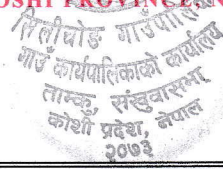 OSHI PROVINCE, N
सिलीचोङ गाउँपालिका
गाउँ कार्यपालिकाको कार्यालय
ताम्कु, संखुवासभा
कोशी प्रदेश, नेपाल
२०७३